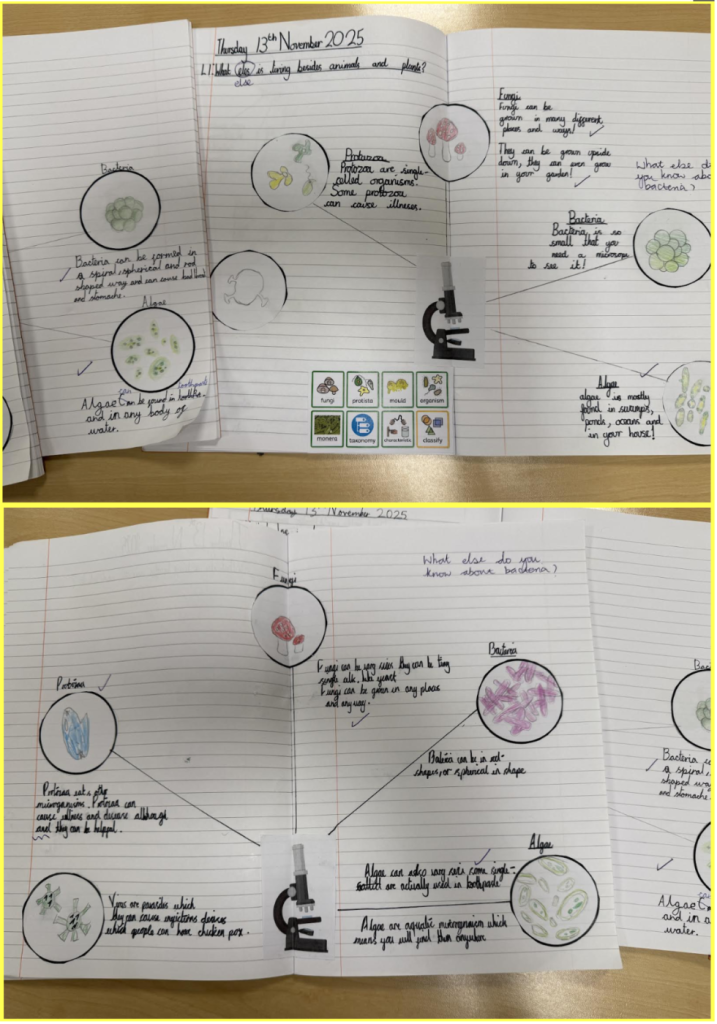 Bacteria
Bacteria can be formed in
a spiral, spherical and rod
shaped way and can cause
and stomache.
Algae
Algae can be found in
and in any body of
water.
Thursday 13th November 2025
L.I: What els is living besides animals and plants?
else
Protozoa
Protozoa are single-
celled organisms.
Some protozoa
can cause illness.
Fungi
Fungi can be
grown in many different
places and ways!
They can be grown upside
down, they can even grow
in your garden!
What else do
you know abo
bacteria?
Bacteria
Bacteria is so
small that you
need a microscope
to see it!
Algae
algae is mostly
found in swamps,
ponds, oceans and
in your house!
fungi
protista
mould
organism
monera
taxonomy
characteristic
classify
Thursday 13th November 2025
Fungi
What else do you
know about bacteria?
Fungi can be very they can be tiny
single cells like yeast
Fungi can be grown in any place
and any way.
Bacteria
can be in rod-
shapes, or spherical in shape
Protozoa eats other
microorganisms. Protozoa can
cause illness and disease
and they can be helpful.
Virus are parasites which
they can cause
which people can have chicken pox.
Algae
Algae can also very some single-
are actually used in toothpaste
Algae are aquatic which
means you will find them
Bac
Bacteria c
a spiral,
shaped way
and stomache.
Algae
and in a
water.